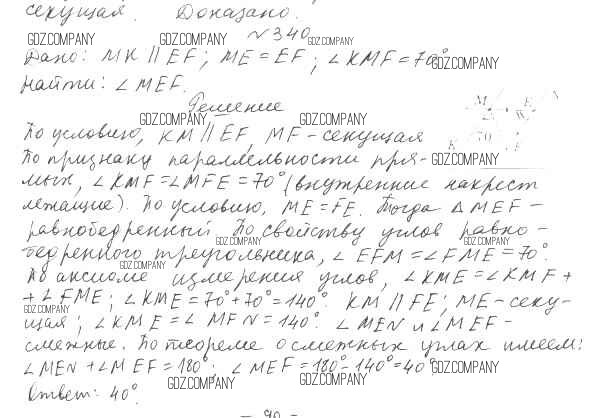 секущая. Доказано.
№340
GDZ.COMPANY GDZ.COMPANY GDZ.COMPANY
Дано: MK || EF; ME = EF; ∠KMF = 70°
GDZ.COMPANY
Найти: ∠MEF.
Решение
GDZ.COMPANY GDZ.COMPANY
По условию, KM || EF, MF - секущая
По признаку параллельности пря-
GDZ.COMPANY
мых, ∠KMF = ∠MFE = 70° (внутренние накрест
лежащие). По условию, ME = FE. Тогда △MEF -
равнобедренный По свойству углов равно-
GDZ.COMPANY GDZ.COMPANY
бедренного треугольника, ∠EFM = ∠FME = 70°.
GDZ.COMPANY
По аксиоме измерения углов, ∠KME = ∠KMF +
+ ∠FME; ∠KME = 70° + 70° = 140°. KM || FE; ME - секу-
GDZ.COMPANY
щая; ∠KME = ∠MFN = 140°. ∠MEN и ∠MEF -
смежные. По теореме о смежных углах имеем:
∠MEN + ∠MEF = 180°; ∠MEF = 180° - 140° = 40°
GDZ.COMPANY
GDZ.COMPANY GDZ.COMPANY
Ответ: 40°.
- 90 -